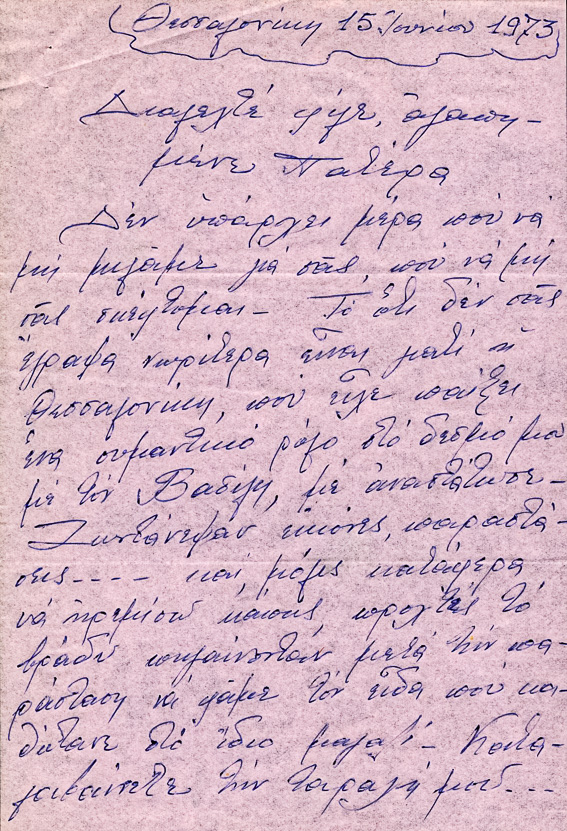 Θεσσαλονίκη 15 Ἰουνίου 1973
Διαλεχτέ φίλε, ἀγαπη-
μένε Πατέρα
Δέν ὑπάρχει μέρα πού νά
μή μιλᾶμε γιά σᾶς, πού νά μή
σᾶς σκέφτομαι - Τό ὅτι δέν σᾶς
ἔγραψα νωρίτερα εἶναι γιατί ἡ
Θεσσαλονίκη, πού εἶχε παίξει
ἕνα σημαντικό ρόλο στό δεσμό μου
μέ τόν Βασίλη, μέ ἀναστάτωσε -
Ζωντάνεψαν εἰκόνες, παραστά-
σεις ---- καί μόλις κατάφερα
νά ἠρεμήσω κάπως, προχτές τό
βράδυ πηγαίνοντας μετά τήν πα-
ράσταση νά φᾶμε τόν εἶδα πού κα-
θότανε στό ἴδιο μαγαζί - Κατα-
λαβαίνετε τήν ταραχή μου ---